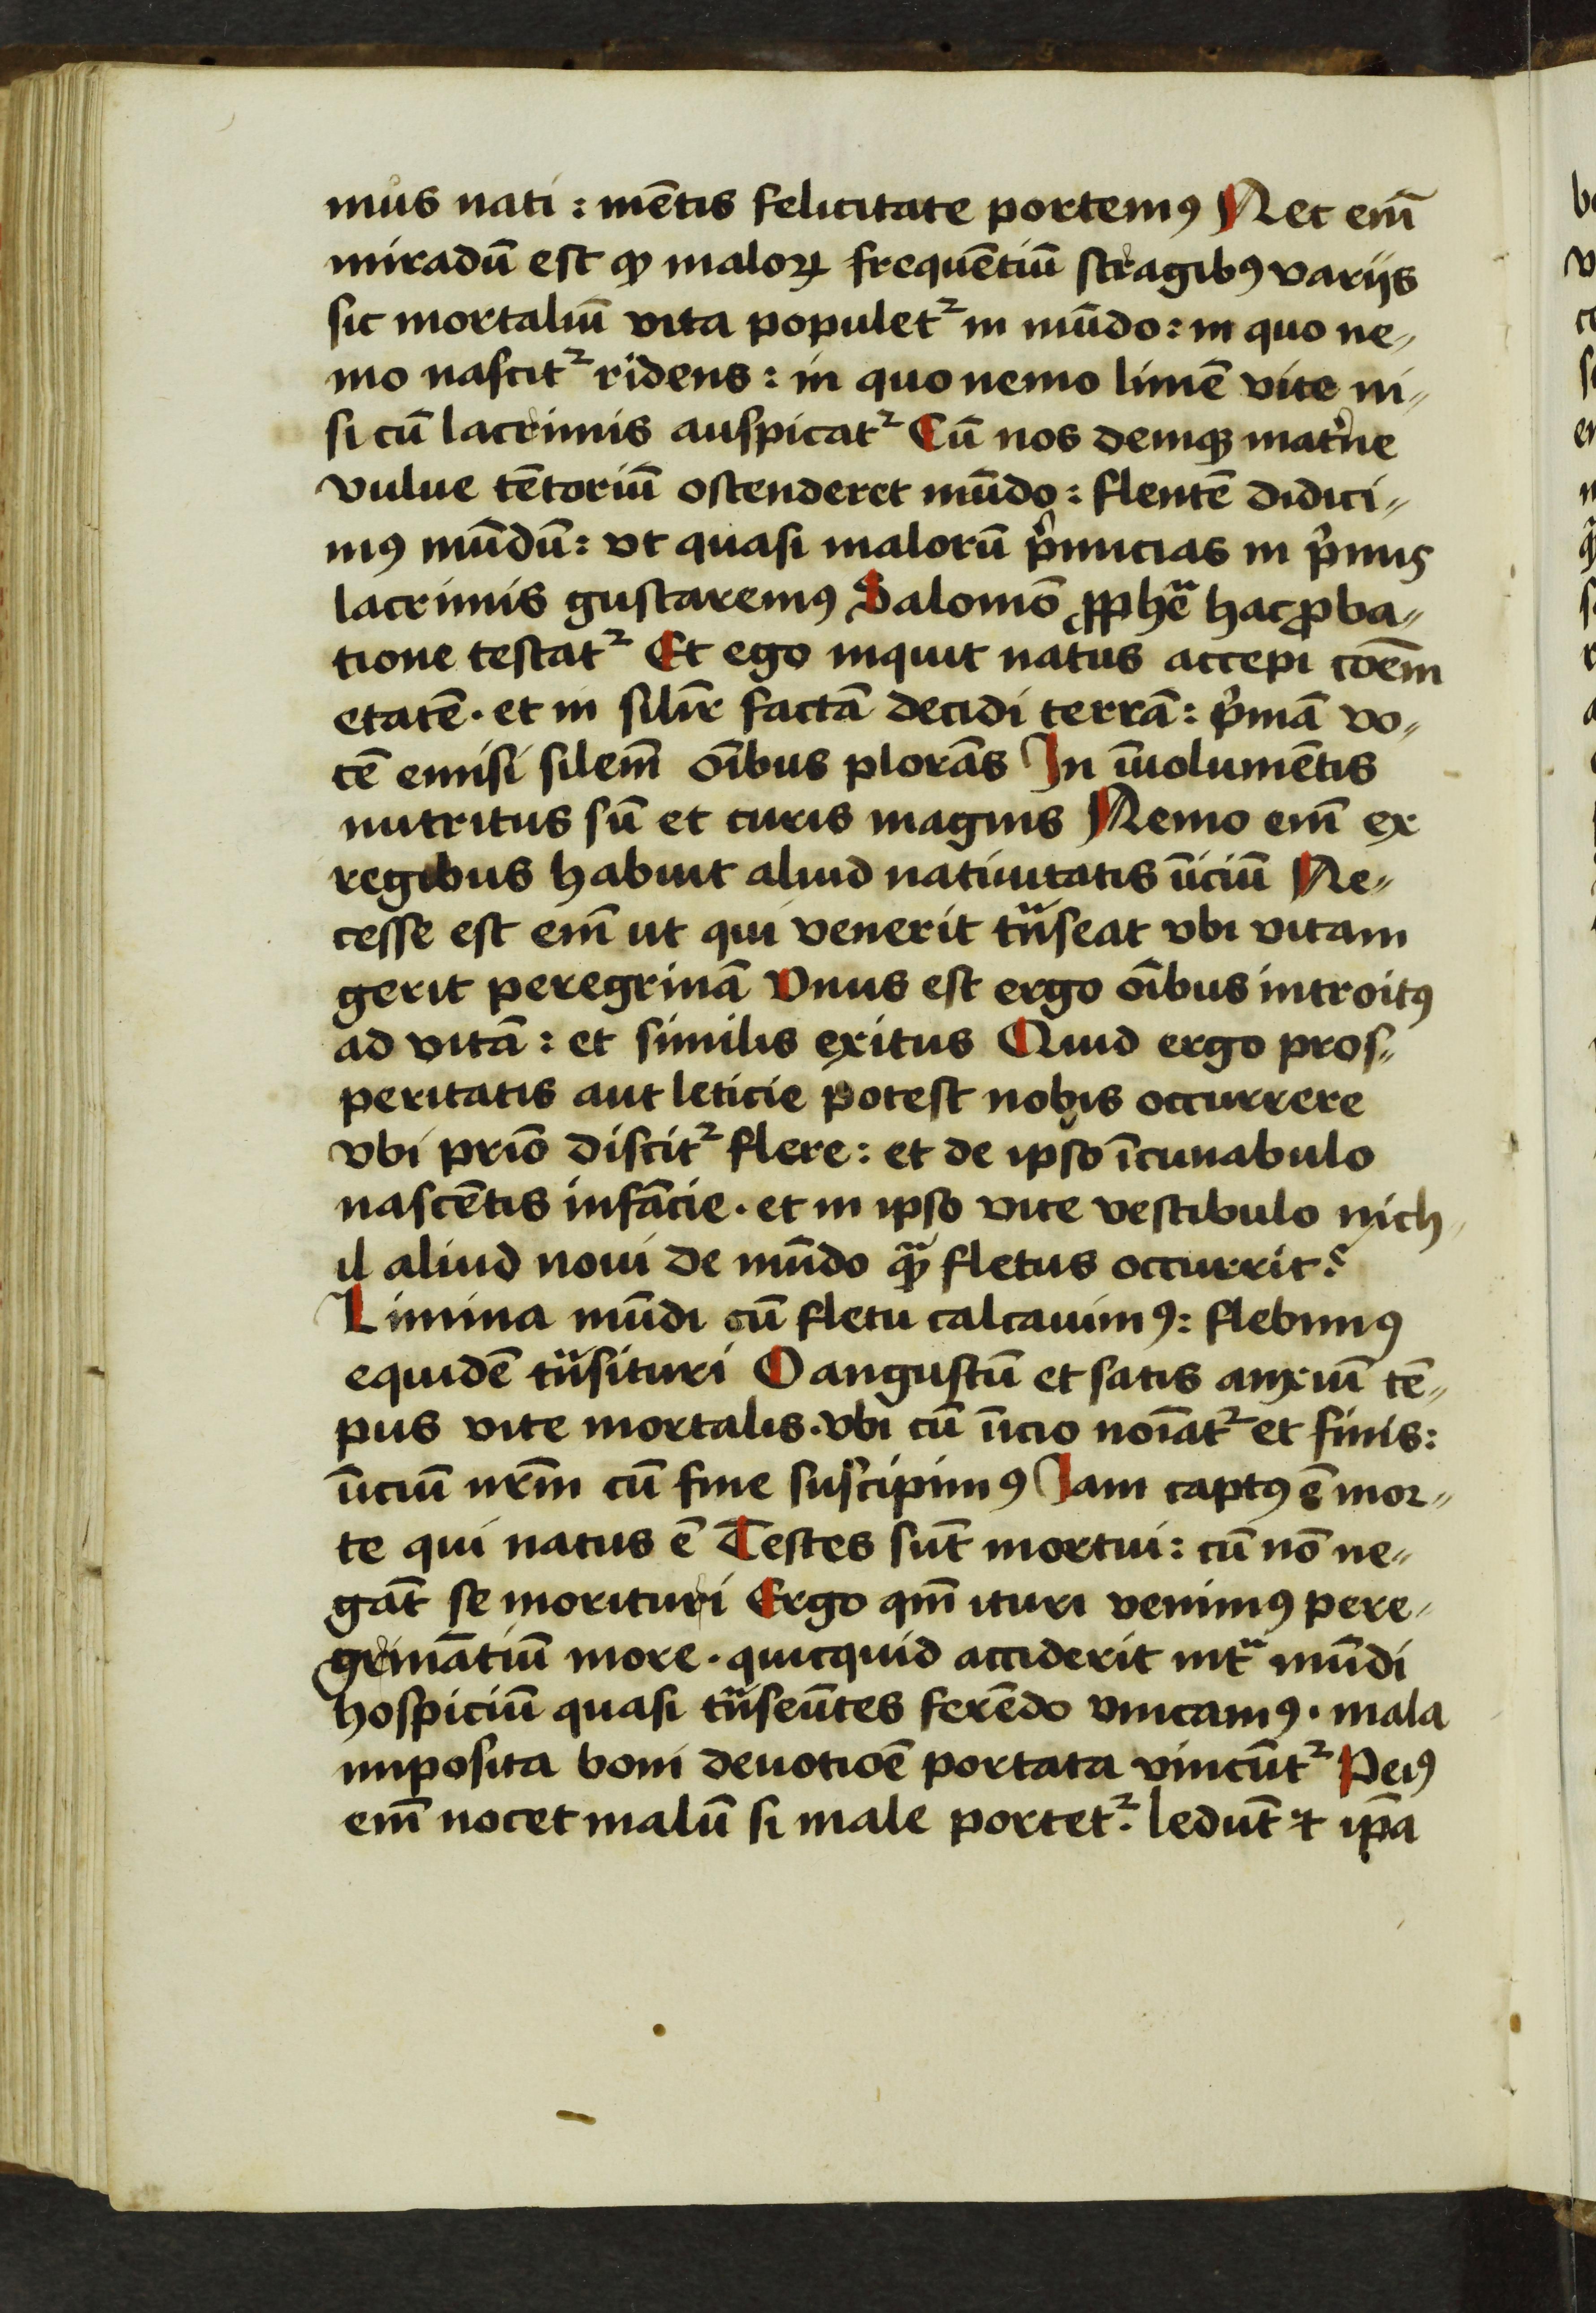 mus nati : mētis felicitate portemꝰ Nec em̄
miradū est ꝙ malorꝝ frequētiū stragibꝰ varijs
sic mortaliū vita populet᷑ in mūdo : in quo ne„
mo nascit᷑ ridens : in quo nemo limē vite ni„
si cū lacrimis auspicat᷑ Cū nos deniqꝫ mat̉ne
vulue tētoriū ostenderet mūdo : flentē didici„
mꝰ mūdū : vt quasi malorū p̉micias in p̉mis
lacrimis gustaremꝰ Salomō ꝓph̄a hac ꝓba„
tione testat᷑ Et ego inquit natus accepi cōem̄
etatē · et in silir̄ factā decidi terrā : p̉mā vo„
cē emisi silem̄ oībus plorās In īuolumētis
nutritus sū et curis magnis Nemo em̄ ex
regibus habuit aliud natiuitatis īiciū Ne„
cesse est em̄ ut qui venerit tͣnseat vbi vitam
gerit peregrinā Vnus est ergo oībus introitꝰ
ad vitā : et similis exitus Quid ergo pros„
peritatis aut leticie potest nobis occurrere
vbi primo discit᷑ flere : et de ipso īcunabulo
nascētis infācie · et in ipso vite vestibulo nich„
il aliud noui de mūdo qͣꝫ fletus occurrit?
Limina mūdi cū fletu calcauimꝰ : flebimꝰ
equidē tͣnsituri O angustū et satis anxiū tē„
pus vite mortalis · vbi cū īicio noīat᷑ et finis :
īiciū nr̄m cū fine suscipimꝰ Iam captꝰ ē mor„
te qui natus ē Testes sūt mortui : cū nō ne„
gāt se morituri Ergo qm̄ ituri venimꝰ pere„
grinātiū more · quicquid acciderit intͣ mūdi
hospiciū quasi tͣnseūtes ferēdo vincamꝰ · mala
imposita boni deuotiōe portata vincūt᷑ Peiꝰ
em̄ nocet malū si male portet᷑ · ledūt ⁊ ip̄a